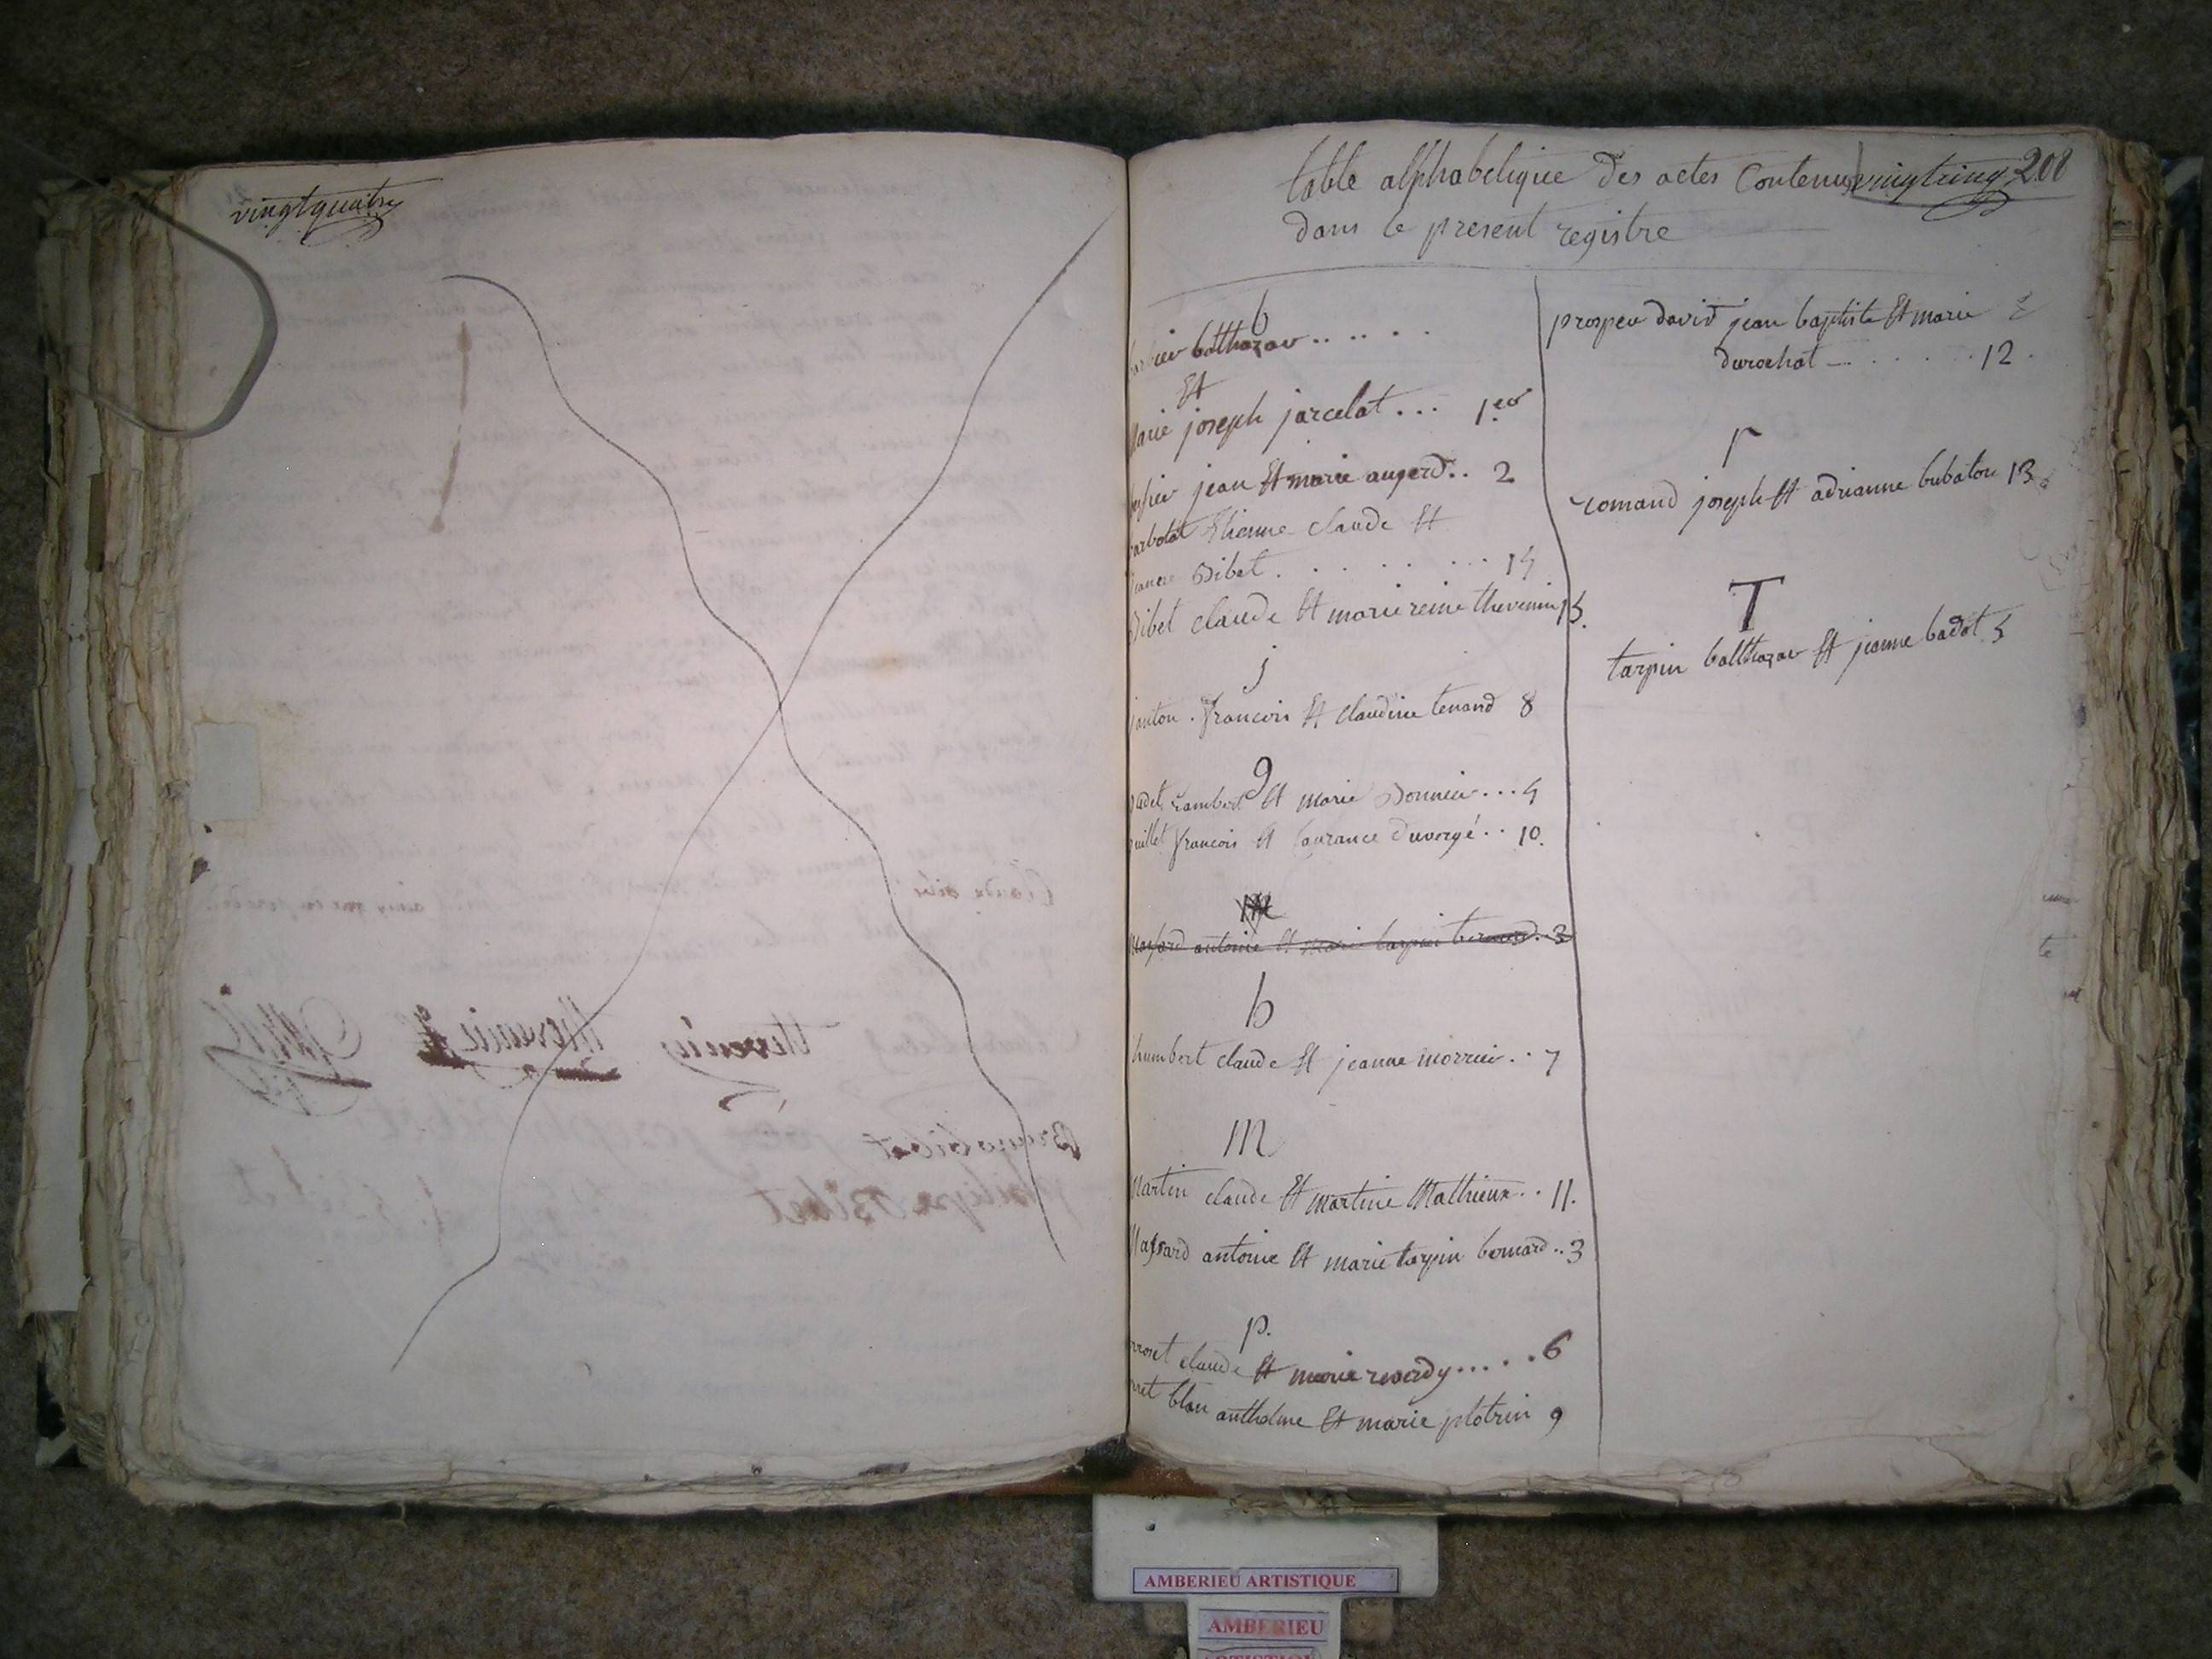 vingtquatre
table alphabetique des actes Contenus vingtcinq 208
dans le present registre
b
balthazar
Et
Marie joseph jarcelat ... 1er
jean Et marie augerd .. 2
Etienne claude Et
Bibet . . . . . . . . 14
Bibet claude Et marie reine thevenin 15.
j
janton . francois Et claudine tenand 8
g
lambert Et marie Bonnier ... 4
francois Et laurance duvergé .. 10.
M
antoine Et marie tarpin bernard .. 3
h
humbert claude Et jeanne morrier .. 7
M
Martin claude Et martine Mathieux .. 11.
Massard antoine Et marie tarpin bernard .. 3
p.
claude Et marie reverdy ..... 6
blan anthelme Et marie plotrin 9
prosper david jean baptiste Et marie
durochat _ . . . . . 12 .
r
romand joseph Et adrianne bubaton 13
T
tarpin balthazar Et jeanne badot 5
AMBERIEU ARTISTIQUE
AMBERIEU
ARTISTIQUE